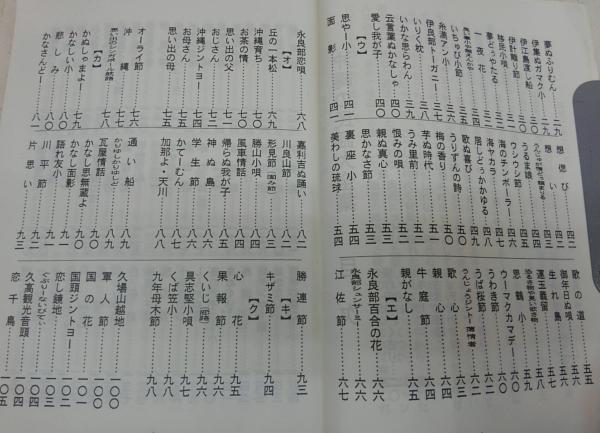 夢ぬふりむん……二九
伊集ぬガマク小……三〇
伊江島渡し船……三一
伊計離り節……三二
移民小唄……三三
夢どぅやたる……三四
一夜花……三四
いちゅび小節……三五
糸満アン小……三六
伊良部トーガニー……三七
いりく枕……三八
いかな思らわん……三九
云言葉ぬかなしゃ……四〇
愛し我が子……四〇
【ウ】
思やー小……四一
面影……四一
想偲び……四二
想い……四三
うるま娘……四四
ウシウシ節……四五
海のチンボーラー……四六
海ヤカラ……四七
居しどぅかかゆる……四八
歌ぬ喜び……四九
うりずんの詩……五〇
梅の香り……五〇
芋ぬ時代……五一
うみ里前……五一
恨みの唄……五二
親ぬ真心……五二
思かなさ節……五三
裏座小……五四
美わしの琉球……五四
歌の道……五五
御年日ぬ唄……五六
生れ島……五六
運玉義留……五八
思鶴小……五九
ウーマクカマデー……六〇
うわき節……六一
うば桜節……六二
うんじょうジントー(薄情者)……六二
歌心……六三
親心……六四
牛庭節……六四
親がなし……六五
【エ】
永良部百合の花……六六
永良部シュンサーミー……六七
江佐節……六七
永良部恋唄……六八
【オ】
丘の一本松……六九
沖縄育ち……七〇
お茶の情……七一
思い出の父……七二
沖縄ジントーヨー……七三
おじさん……七四
お母さん……七五
思い出の母……七五
オーライ節……七六
沖縄……七七
思い出シンガポール航路……七八
【カ】
かぬしゃまよー……七九
かなしい小……八〇
悲しみ……八〇
かなさんどー……八一
嘉利吉ぬ踊い……八二
川良山節……八二
形見節(面み節)……八三
勝山小唄……八四
風車情話……八四
帰らぬ我が子……八五
神ぬ島……八六
学生節……八六
かてーむん……八七
加那よ・天川……八八
通い船……八九
かりゆしかりゆしどー……八九
瓦屋情話……九〇
かなし思無蔵よ……九〇
かなし面影……九一
語れ友小……九一
川平節……九二
片思い……九三
勝連節……九三
【キ】
キザミ節……九四
【ク】
心花……九五
果報節……九六
くいじ(恋路)……九七
具志堅小唄……九七
くば笠小……九八
九年母木節……九八
久場山越地……一〇〇
軍人節……一〇〇
国の花……一〇一
国頭ジントーヨー……一〇二
恋し鏡地……一〇三
久高観光音頭……一〇四
恋千鳥……一〇五